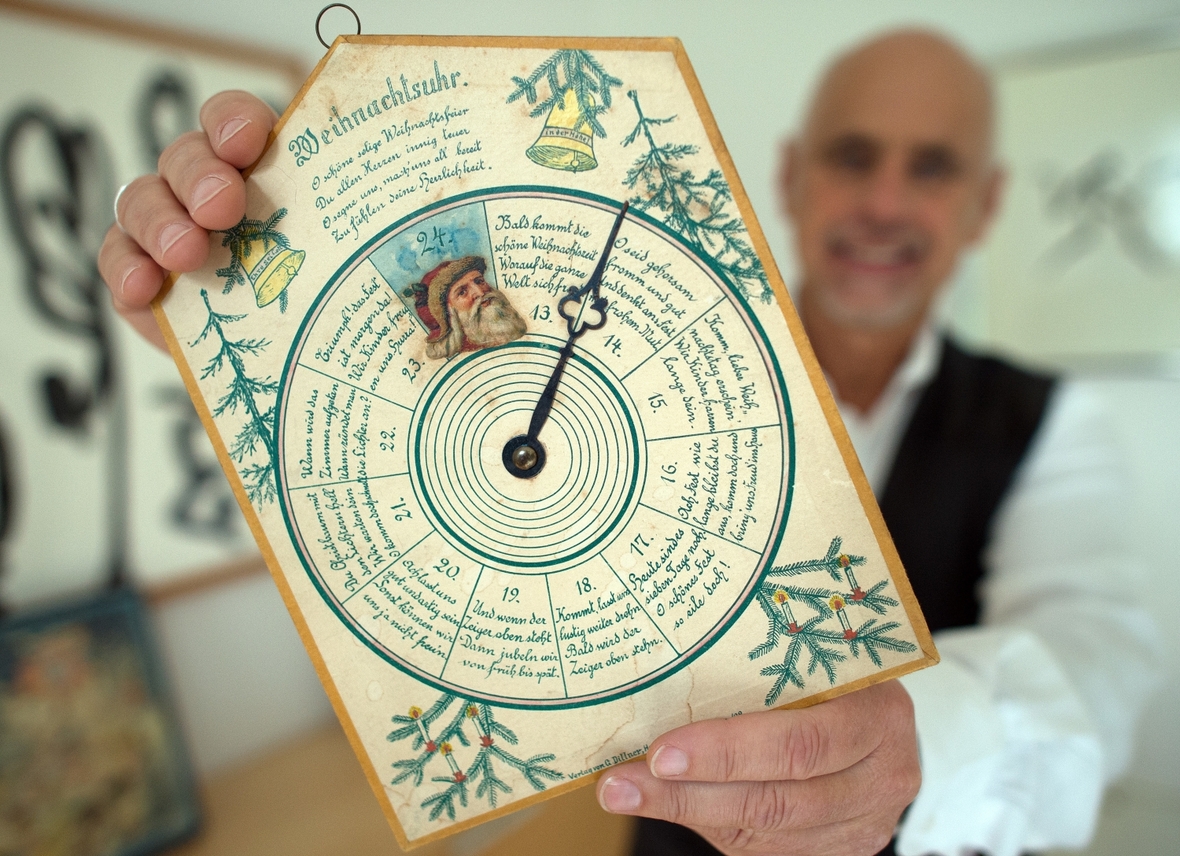 Weihnachtsuhr.
O schöne selige Weihnachtsfeier
Du allen Herzen innig teuer
O segne uns, mach uns all bereit
Zu fühlen deine Herrlichkeit.
in der Höhe!
24.
Bald kommt die
schöne Weihnachtszeit
Worauf die ganze
Welt sich
13.
O seid gehorsam
fromm und gut
Und denkt ans Fest
frohen Mut
14.
Komm, lieber Weih-
nachtstag erschein
Wir Kinder
lange dein.
15.
16.
Ach Fest wie
lange bleibst du
aus, komm doch und
bring uns Freud ins Haus
17.
Heute sind es
sieben Tage noch
O schönes Fest
so eile doch!
18.
Kommt, lasst uns
lustig weiter drehn
Bald wird der
Zeiger oben stehn.
19.
Und wenn der
Zeiger oben steht
Dann jubeln wir
von früh bis spät.
20.
Ach lasst uns
gut und artig sein
Sonst können wir
uns ja nicht freun
21.
Du Christbaum mit
den Lichtern hell
Wir warten dein
O komm doch schnell
22.
Wann wird das
Zimmer aufgetan
Wann zündet man
die Lichter an?
23.
Triumph! das Fest
ist morgen da
Wir Kinder freun
uns Hurra!
Verlag von G. Dittner,